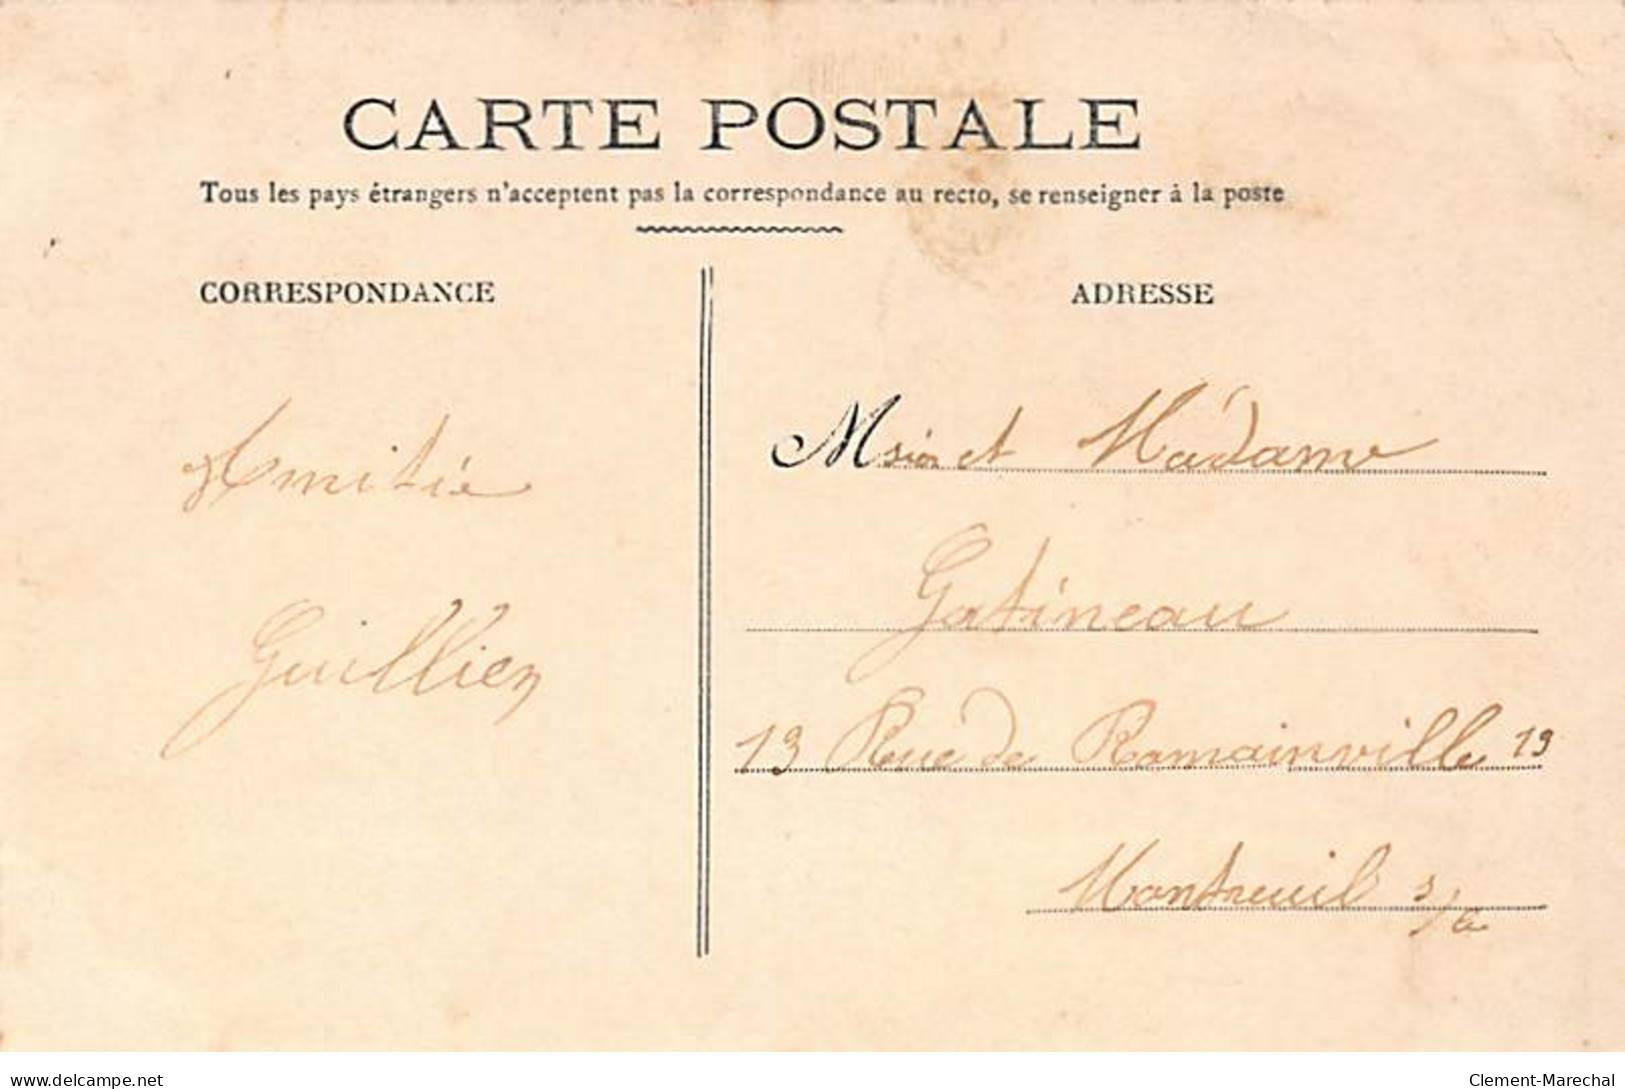 CARTE POSTALE
Tous les pays étrangers n'acceptent pas la correspondance au recto, se renseigner à la poste
CORRESPONDANCE
Amitié
Guillien
ADRESSE
et Madame
Gatineau
Rue de Romainville
Montreuil s/
delcampe.net
Clement-Marechal